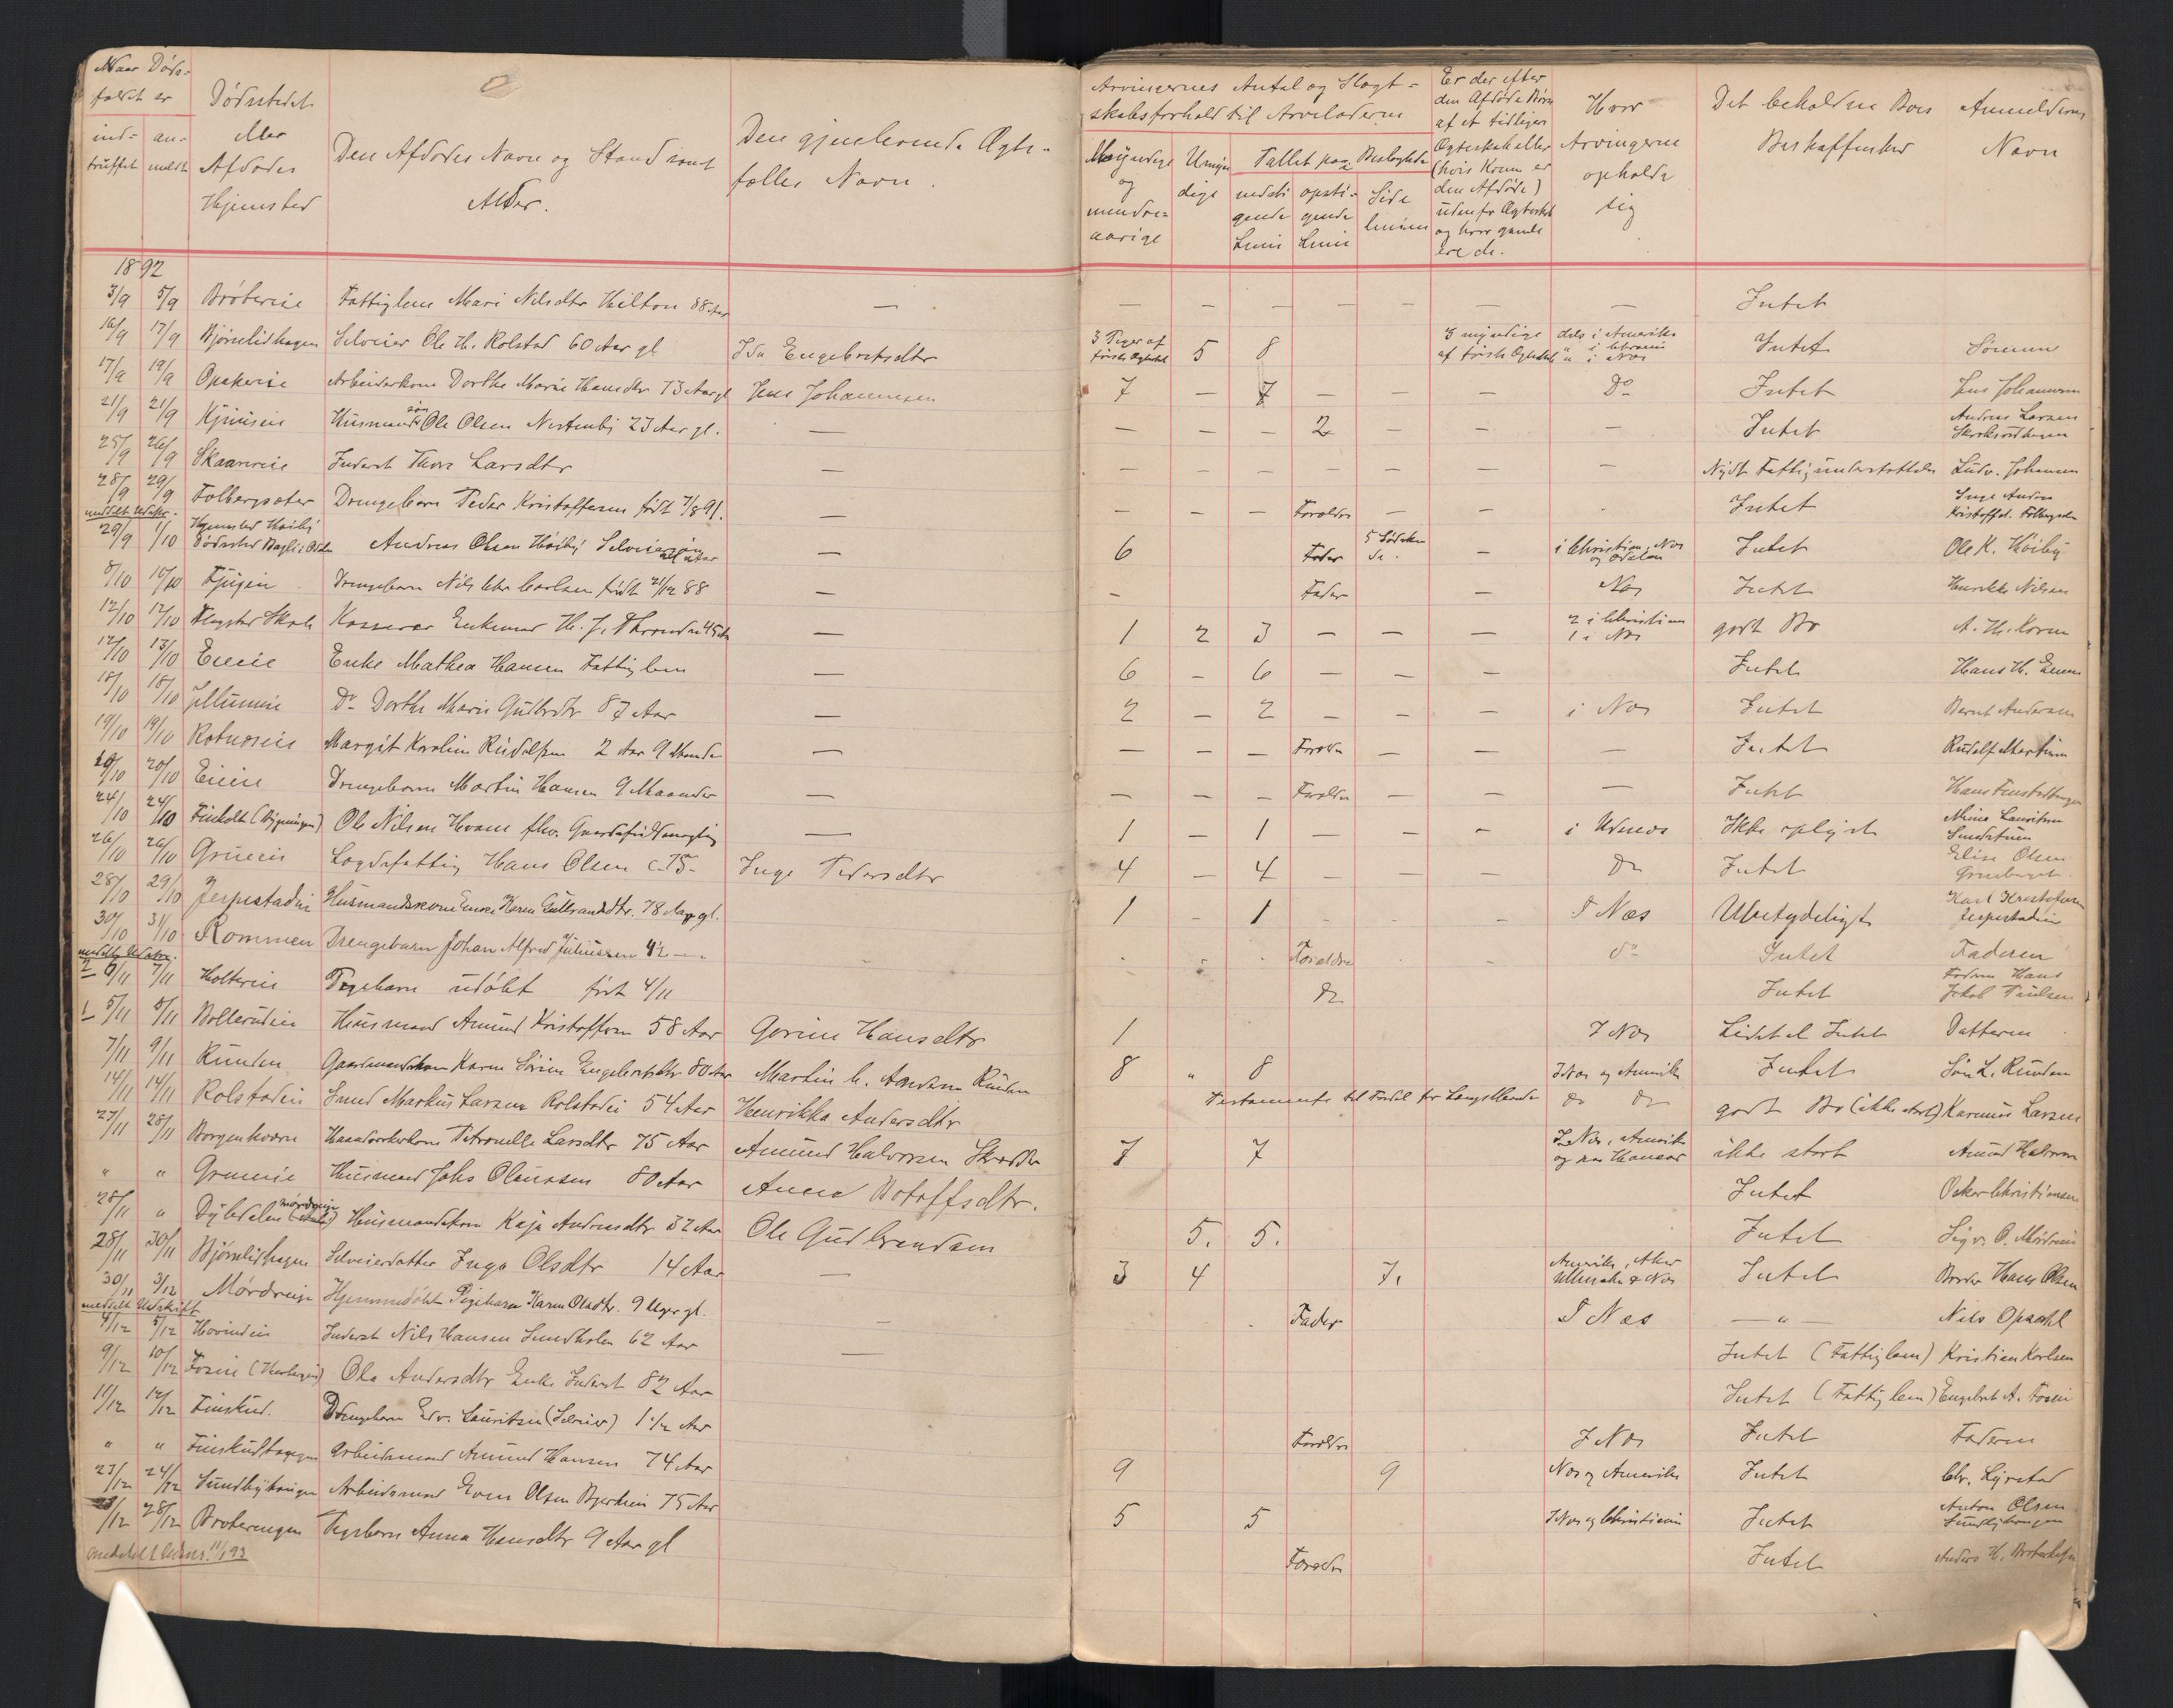 Naar Døds-
faldet er
ind-
truffet
an-
meldt
Dødsstedet
eller
Afdødes
Hjemsted
Den Afdødes Navn og Stand samt
Alder.
Den gjenlevende Ægte-
fælles Navn.
Arvingernes Antal og Slægt-
skabsforhold til Arveladeren
Myndige
og
mindre-
aarige
Umyn
dige
Tallet paa Beslægtede
nedsti
gende
Linie
opsti-
gende
Linie
Side
linien
Er der efter
den Afdøde Børn
af et tidligere
Ægteskab eller
(hvis Konen er
den Afdøde)
udenfor Ægteskab
og hvor gamle
ere de.
Hvor
Arvingerne
opholde
sig
Det beholdne Boes
Beskaffenhed
Anmelderens
Navn
1892
3/9 5/9 Bråtereie Fattiglem Mari Nilsdtr Hilton 88 Aar — — — — — — — — Intet
16/9 17/9 Bjørnlishagen Selveier Ole H. Rolstad 60 Aar gl Ida Engebretsdtr 3 Piger af første Ægteskab 5 8 3 myndige af første Ægteskab dels i Amerika i Christiania i Nes Intet Sønnen
17/9 19/9 Opakereie Arbeiderkone Dorthe Marie Hansdtr 73 Aar gl Jens Johannesen 7 — 7 — — — Do Intet Jens Johannesen
21/9 21/9 Husmandssøn Ole Olsen Nestenbi 23 Aar gl. — — — — 2 — — — Intet Andreas Larsen
25/9 26/9 Skaanereie Inderst Thore Larsdtr — — — — — — — — Nydt Fattigunderstøttelse Ludv. Johansen
28/9 29/9 Folbergsæter Drengebarn Peder Kristoffersen født 7/8 91. — — — — Forældre — — Intet Inge Andrea Kristoffersd. Folbergsæter
meddelt Udskr.
29/9 1/10 Hjemsted Høiby Dødssted Andreas Olsen Høiby Selveiersøn — 6 Fader 5 Sødsken — i Christiania, Nes og Odalen Intet Ole K. Høiby
8/10 10/10 Drengebarn Nils Chr. Carlsen født 21/12 88 — — Fader — Nes Intet Henrikke Nilsen
12/10 12/10 Skole Kasserer Enkemand H. J. 45 Aar — 1 2 3 — — — 2 i Christiania 1 i Nes godt Bo A. H. Koren
12/10 13/10 Eieie Enke Mathea Hansen Fattiglem — 6 — 6 — — — Intet Hans H.
18/10 18/10 Do Dorthe Marie Gulbrdtr 87 Aar — 2 — 2 — — — i Nes Intet Bernt Andersen
19/10 19/10 Rotneseie Margit Karoline Rudolfsen 2 Aar 9 Maander — — — — Forældre — — — Intet Rudolf Martinsen
19/10 20/10 Eieie Drengebarn Martin Hansen 9 Maaneder — — — — Forældre — — — Intet
24/10 24/10 Finholt (Bygningen) Ole Nilsen Hvam fhv. — 1 — 1 — — — i Udenes Ikke oplyst Mina Lauritsen
26/10 26/10 Grueeie Lægdsfattig Hans Olsen c. 75 — Inge Pedersdtr 4 — 4 — — — Do Intet Elise Olsen
28/10 29/10 Jerpestadeie Husmandskone Enke Karen Gulbrandsdtr. 78 Aar gl. 1 - 1 - - I Nes Ubetydeligt Karl Kristofersen Jerpestadeie
30/10 31/10 Rommen Drengebarn Johan Alfred Juliussen 4½ — do Forældre Intet Faderen
meddelt Udskr.
2 6/11 7/11 Holtereie Pigebarn udøbt født 4/11 Do Intet Faderen Hans Jakob Paulsen
1 5/11 8/11 Bollerudeie Husmand Amund Kristoffersen 58 Aar Gorine Hansdtr 1 I Nes Lidet el. Intet Datteren
7/11 9/11 Runden Gaardmandskone Karen Sørine Engebretsdtr 80 Aar Martin C. Andersen Runden 8 " 8 I Nes og Amerika Intet Søn L. Runden
14/11 14/11 Rolstadeie Smed Markus Larsen Rolstadeie 54 Aar Henrikka Andersdtr Testamente til Fordel for Længstlevende do do godt Bo (ikke stort) Karenius Larsen
27/11 28/11 Borgenkværn Haandverkerkone Petronelle Larsdtr 75 Aar Amund Halvorsen 7 7 I Nes, Amerika ikke stort Amund Halvorsen
" " Grueeie Husmand Johs Olaussen 80 Aar Anne Botolfsdtr. Intet Oskar Christiansen
28/11 " Dybdalen Mørdreeie Husmandskone Kaja Andreasdtr 32 Aar Ole Gudbrandsen 5. 5. Intet
28/11 30/11 Bjørnlishagen Selveierdatter Inga Olsdtr 14 Aar — 3 4 7. Amerika, Aker Ullensaker & Nes Intet Broder Hans Olsen
30/11 3/12 Mørdreeie Hjemmedøbt Pigebarn Karen Olsdtr. 9 Uger gl. Fader I Nes — " — Nils Opaakl
meddelt Udskrift
4/12 5/12 Hovindeie Inderst Nils Hansen Sundholen 62 Aar — Intet (Fattiglem) Kristian Karlsen
9/12 10/12 Foseie Ole Andersdtr Enke Inderst 82 Aar — Intet (Fattiglem) Engebret A. Foseie
11/12 12/12 Finskud. Drengebarn Edv. Lauritsen (Selveier) 1½ Aar Forældre I Nes Intet Faderen
" " Finskudhaugen Arbeidsmand Amund Hansen 74 Aar 9 9 Nes og Amerika Intet Chr. Lyrstad
23/12 24/12 Sundbyhaugen Arbeidsmand Even Olsen 75 Aar 5 5 I Nes og Christiania Intet Anton Olsen Sundbyhaugen
28/12 Pigebarn Anna Hansdtr 9 Aar gl Forældre Intet Anders H.
meddelt Udskr. 11/1 93